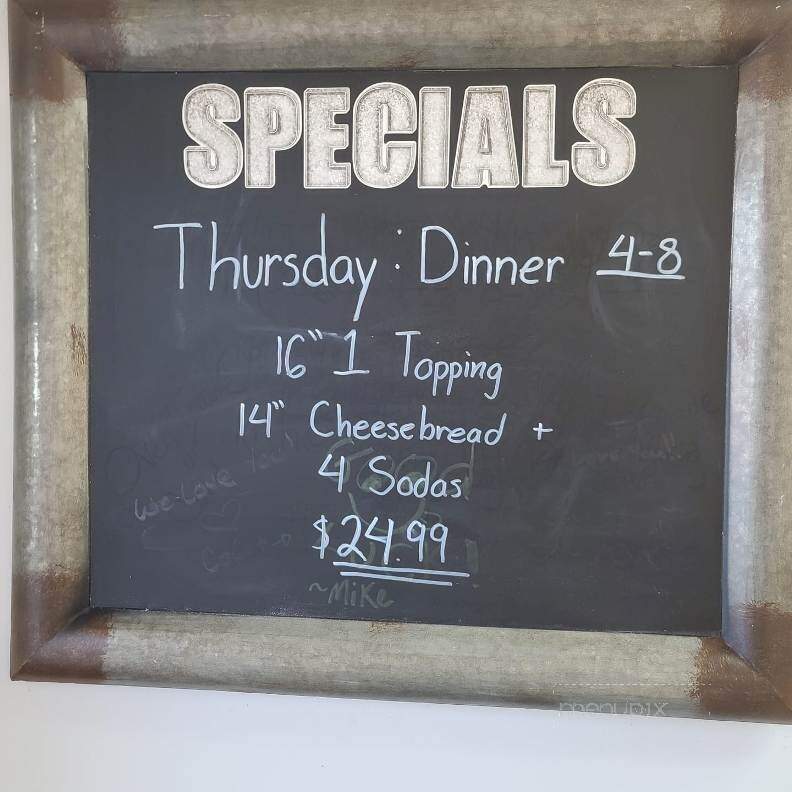 SPECIALS
Thursday : Dinner 4-8
16" 1 Topping
14" Cheesebread +
4 Sodas
We Love You!
$24.99
~Mike
menupix